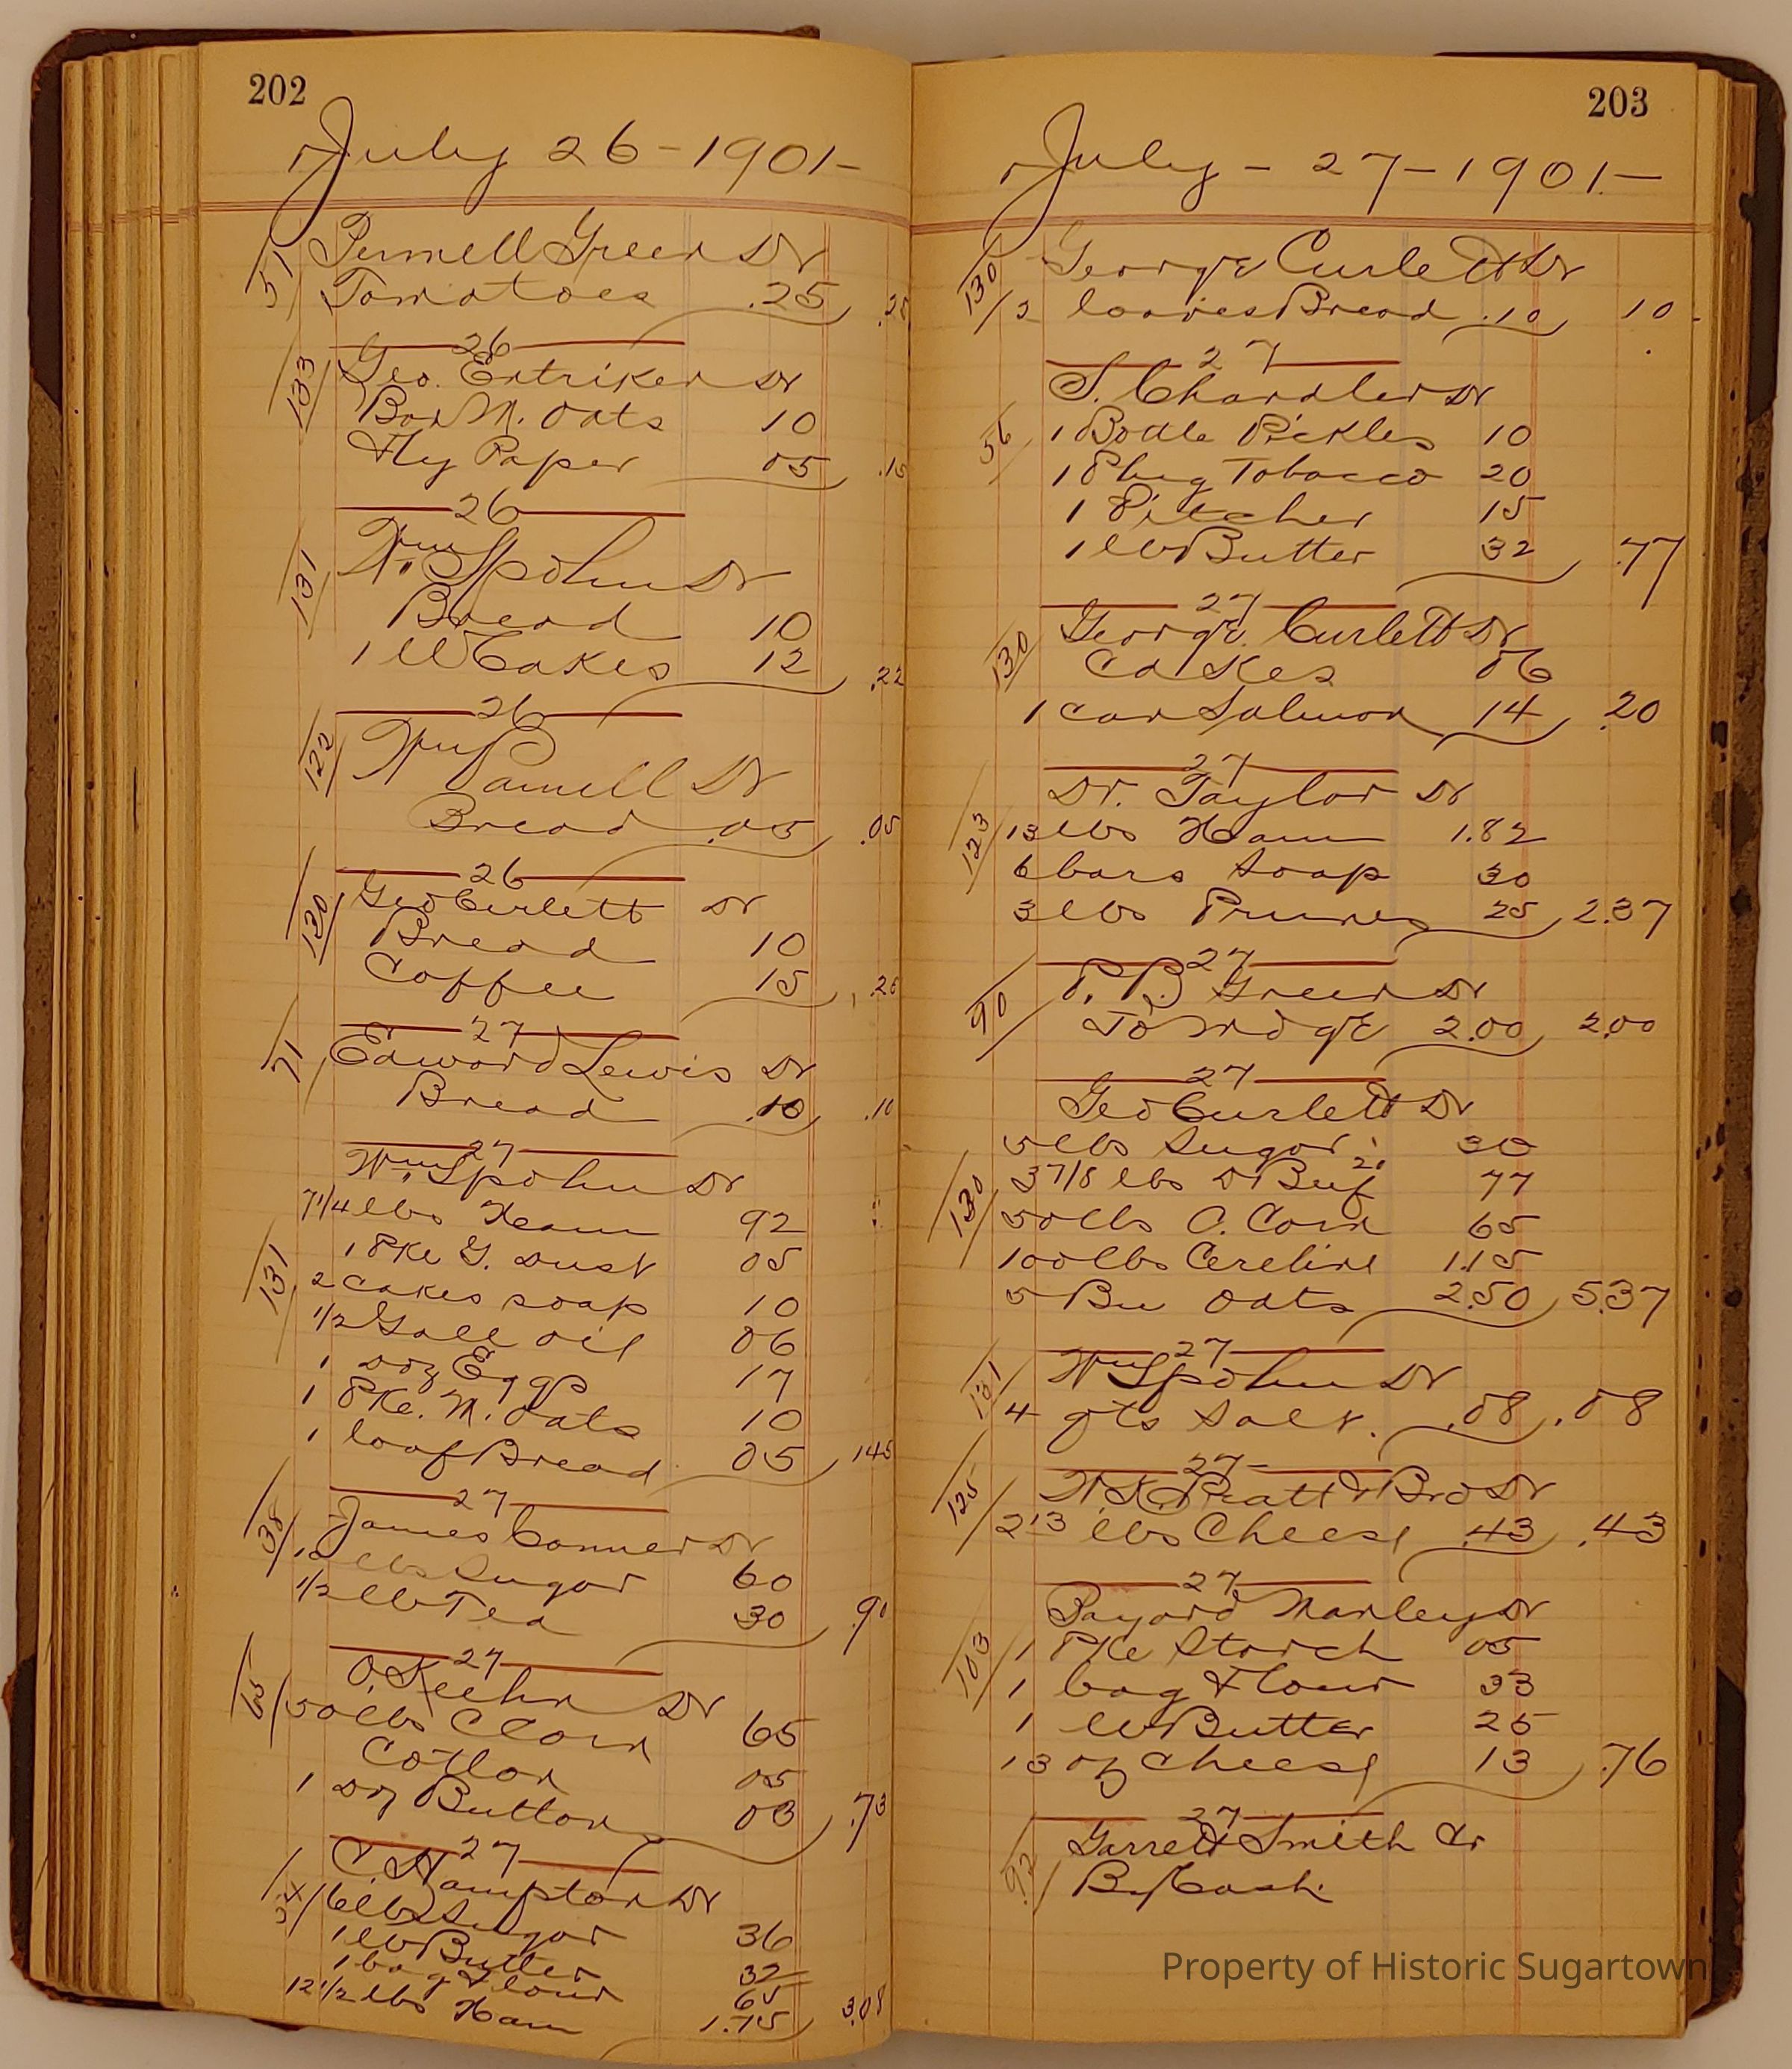 202
July 26-1901-
51 Pennell Green Dr
Tomatoes .25 .25
26
133 Geo. Entriken Dr
Box M. Oats 10
Fly Paper 05 .15
26
131 Wm Spohn Dr
Bread 10
1 lb Cakes 12 .22
26
122 Wm Pannell Dr
Bread .05 .05
26
130 Geo Curlett Dr
Bread 10
Coffee 15 .25
27
71 Edward Lewis Dr
Bread .10 .10
27
Wm Spohn Dr
7 1/4 lbs Ham 92
1 Pke G. Dust 05
131 2 cakes soap 10
1/2 Gall oil 06
1 Doz Eggs 17
1 Pke. M. Oats 10
1 loaf Bread 05 145
27
38 James Conner Dr
10 lbs Sugar 60
1/2 lb Tea 30 .90
27
65 O. Keehn Dr
50 lbs C Corn 65
Cotton 05
1 Doz Button 03 .73
27
C. Hampton Dr
6 lbs Sugar 36
1 lb Butter 32
1 bag Flour 65
12 1/2 lbs Ham 1.75 3.08
203
July - 27-1901-
130 George Curlett Dr
2 loaves Bread .10 10
27
S. Chandler Dr
56 1 Bottle Pickles 10
1 Plug Tobacco 20
1 Pitcher 15
1 lb Butter 32 .77
27
130 George Curlett Dr
Cakes 06
1 can Salmon 14 .20
27
Dr. Taylor Dr
123 13 lbs Ham 1.82
6 bars Soap 30
3 lbs Prunes 25 2.37
27
90 P. B. Green Dr
To Mdge 2.00 2.00
27
Geo Curlett Dr
5 lbs Sugar 30
3 7/8 lbs D Beef 20 77
130 50 lbs C. Corn 65
100 lbs Cereline 1.15
5 Bu Oats 2.50 5.37
27
131 Wm Spohn Dr
4 qts Salt. .08 .08
27
125 W. K. Pratt & Bro Dr
2 13 lbs Cheese .43 .43
27
Bayard Manley Dr
103 1 Pke Starch 05
1 bag Flour 33
1 lb Butter 25
13 oz Cheese 13 .76
27
92 Garrett Smith Cr
By Cash
Property of Historic Sugartown